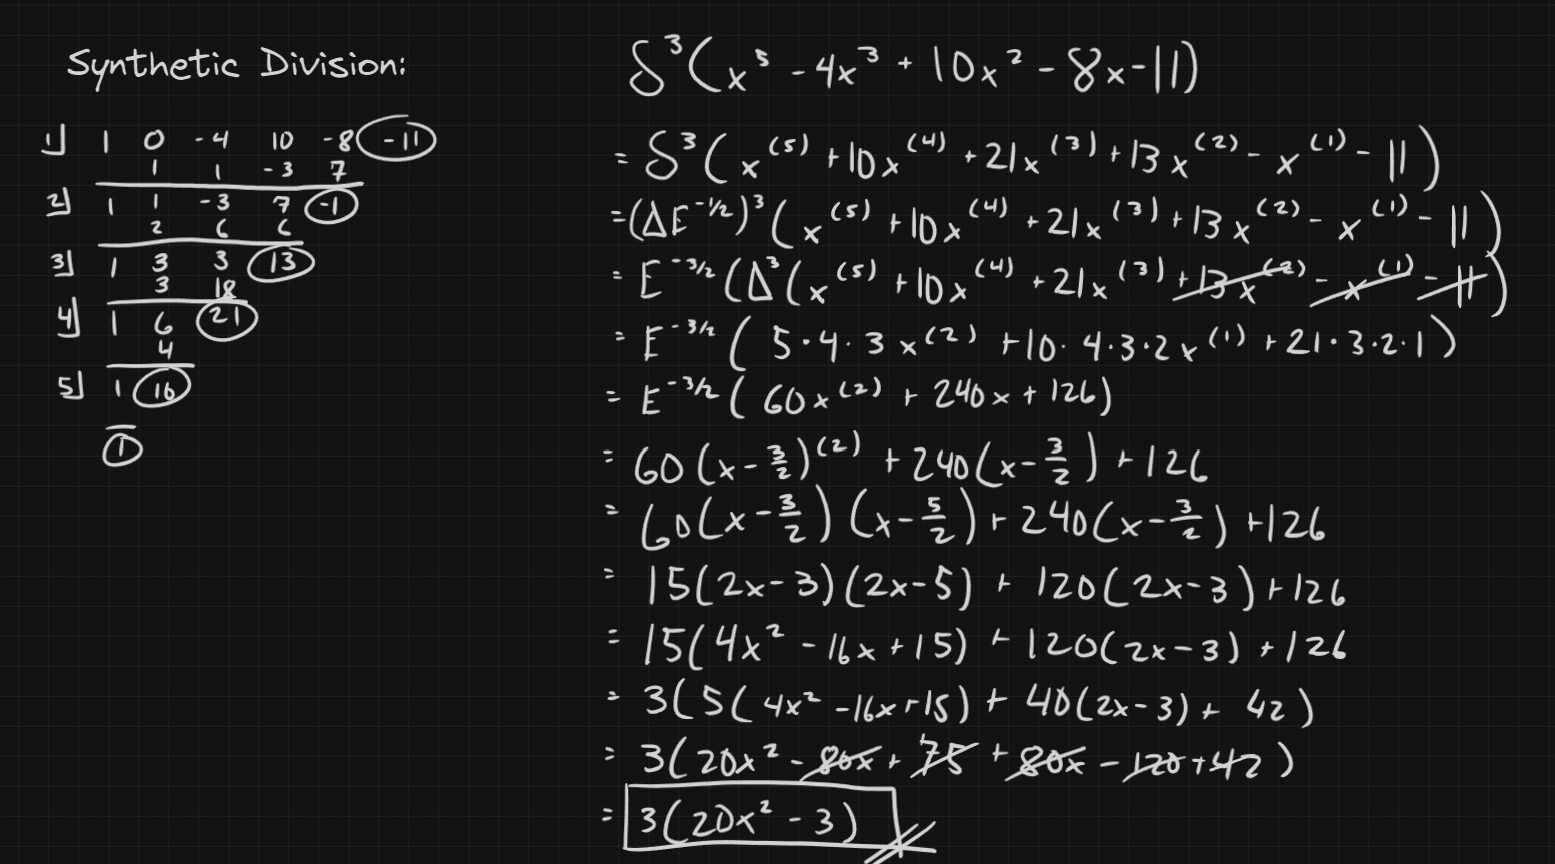 Synthetic Division:
1⌋ 1 0 -4 10 -8 -11
1 1 -3 7
2⌋ 1 1 -3 7 -1
2 6 6
3⌋ 1 3 3 13
3 18
4⌋ 1 6 21
4
5⌋ 1 10
1
δ³(x⁵ - 4x³ + 10x² - 8x - 11)
= δ³(x⁽⁵⁾ + 10x⁽⁴⁾ + 21x⁽³⁾ + 13x⁽²⁾ - x⁽¹⁾ - 11)
= (ΔE^(-1/2))³(x⁽⁵⁾ + 10x⁽⁴⁾ + 21x⁽³⁾ + 13x⁽²⁾ - x⁽¹⁾ - 11)
= E^(-3/2)(Δ³(x⁽⁵⁾ + 10x⁽⁴⁾ + 21x⁽³⁾ + 13x⁽²⁾ - x⁽¹⁾ - 11)
= E^(-3/2)(5·4·3x⁽²⁾ + 10·4·3·2x⁽¹⁾ + 21·3·2·1)
= E^(-3/2)(60x⁽²⁾ + 240x + 126)
= 60(x - 3/2)⁽²⁾ + 240(x - 3/2) + 126
= 60(x - 3/2)(x - 5/2) + 240(x - 3/2) + 126
= 15(2x - 3)(2x - 5) + 120(2x - 3) + 126
= 15(4x² - 16x + 15) + 120(2x - 3) + 126
= 3(5(4x² - 16x + 15) + 40(2x - 3) + 42)
= 3(20x² - 80x + 75 + 80x - 120 + 42)
= 3(20x² - 3)